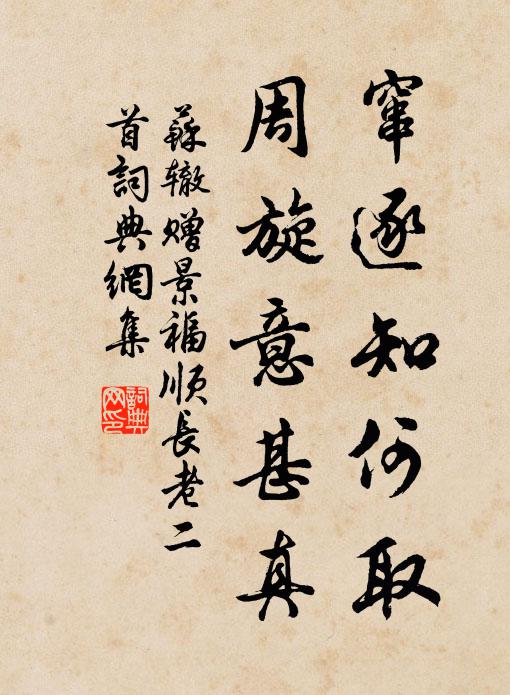 窜逐知何取
周旋意甚真
蘇辙赠景福順長老二
首詞典網集
詞典
网印